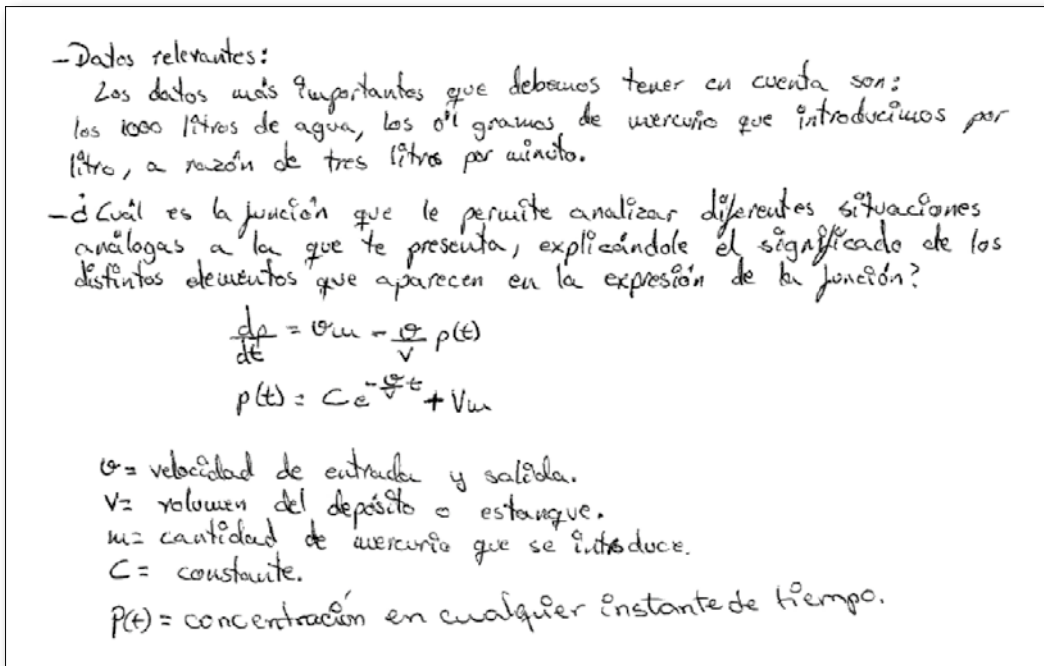 - Datos relevantes:
Los datos más importantes que debemos tener en cuenta son:
los 1000 litros de agua, los 0'1 gramos de mercurio que introducimos por
litro, a razón de tres litros por minuto.
- ¿Cuál es la función que le permite analizar diferentes situaciones
análogas a la que te presenta, explicándole el significado de los
distintos elementos que aparecen en la expresión de la función?
dp/dt = vm - v/V p(t)
p(t) = C e^(-v/V t) + Vm
v = velocidad de entrada y salida.
V = volumen del depósito o estanque.
m = cantidad de mercurio que se introduce.
C = constante.
P(t) = concentración en cualquier instante de tiempo.